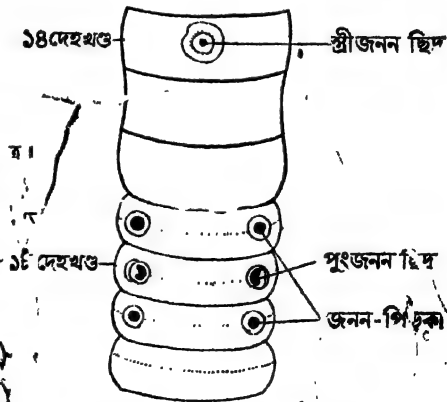 ১৪দেহখণ্ড
স্ত্রীজনন ছিদ্র
১৮ দেহখণ্ড
পুংজনন ছিদ্র
জনন-পিড়কা